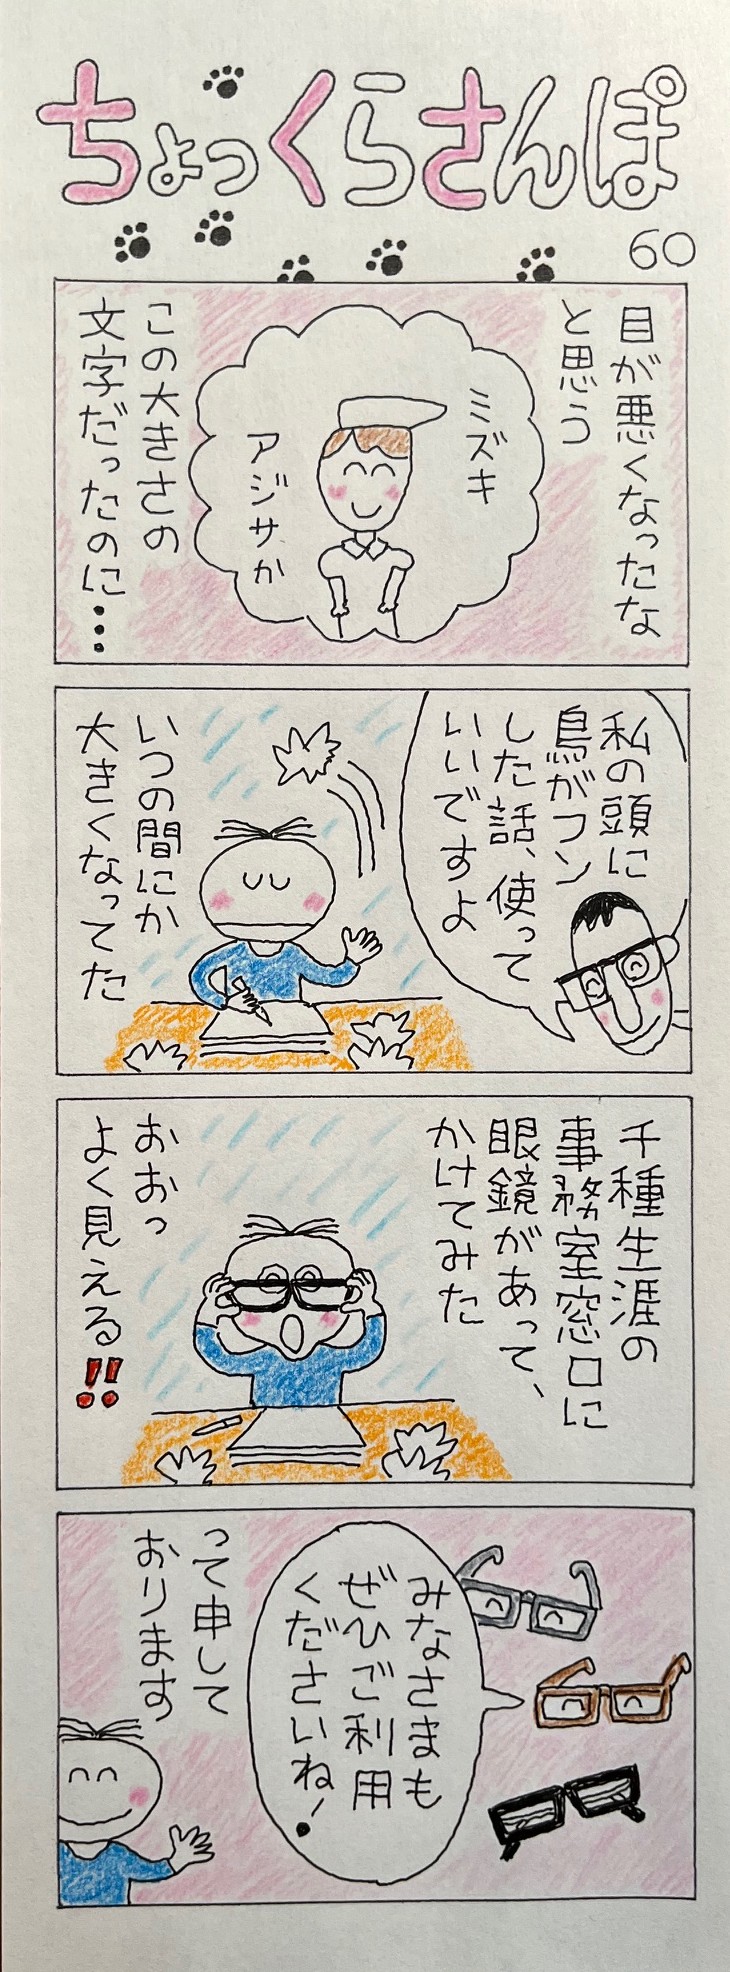 ちょっくらさんぽ
60
目が悪くなったな
と思う
ミズキ
アジサカ
この大きさの
文字だったのに…
私の頭に
鳥がフン
した話、使って
いいですよ
いつの間にか
大きくなってた
千種生涯の
事務室窓口に
眼鏡があって、
かけてみた
おおっ
よく見える!!
みなさまも
ぜひご利用
くださいね!
って申して
おります